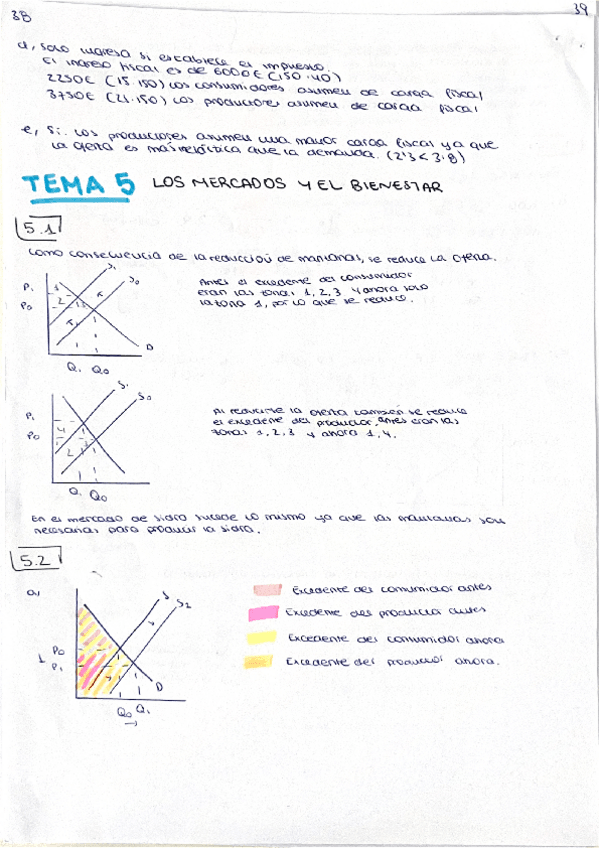 38
39
d, solo ingresa si establece el impuesto.
El ingreso fiscal es de 6000€ (150·40)
2250€ (15·150) los consumidores asumen de carga fiscal
3750€ (21·150) los productores asumen de carga fiscal
e, Si. Los productores asumen una mayor carga fiscal ya que
la oferta es más inelástica que la demanda. (2'3 < 3'8)
TEMA 5 LOS MERCADOS Y EL BIENESTAR
5.1
Como consecuencia de la reducción de manzanas, se reduce la oferta.
Antes el excedente del consumidor
eran las zonas 1, 2, 3 y ahora solo
la zona 1, por lo que se reduce.
P1
P0
1
2
3
S1
S0
D
Q1 Q0
Al reducirse la oferta también se reduce
el excedente del productor, antes eran las
zonas 1, 2, 3 y ahora 1, 4.
P1
P0
4
2
S1
S0
Q1 Q0
En el mercado de sidra sucede lo mismo ya que las manzanas son
necesarias para producir la sidra.
5.2
a,
P0
P1
S
S2
D
Q0 Q1
Excedente del consumidor antes
Excedente del productor antes
Excedente del consumidor ahora
Excedente del productor ahora.